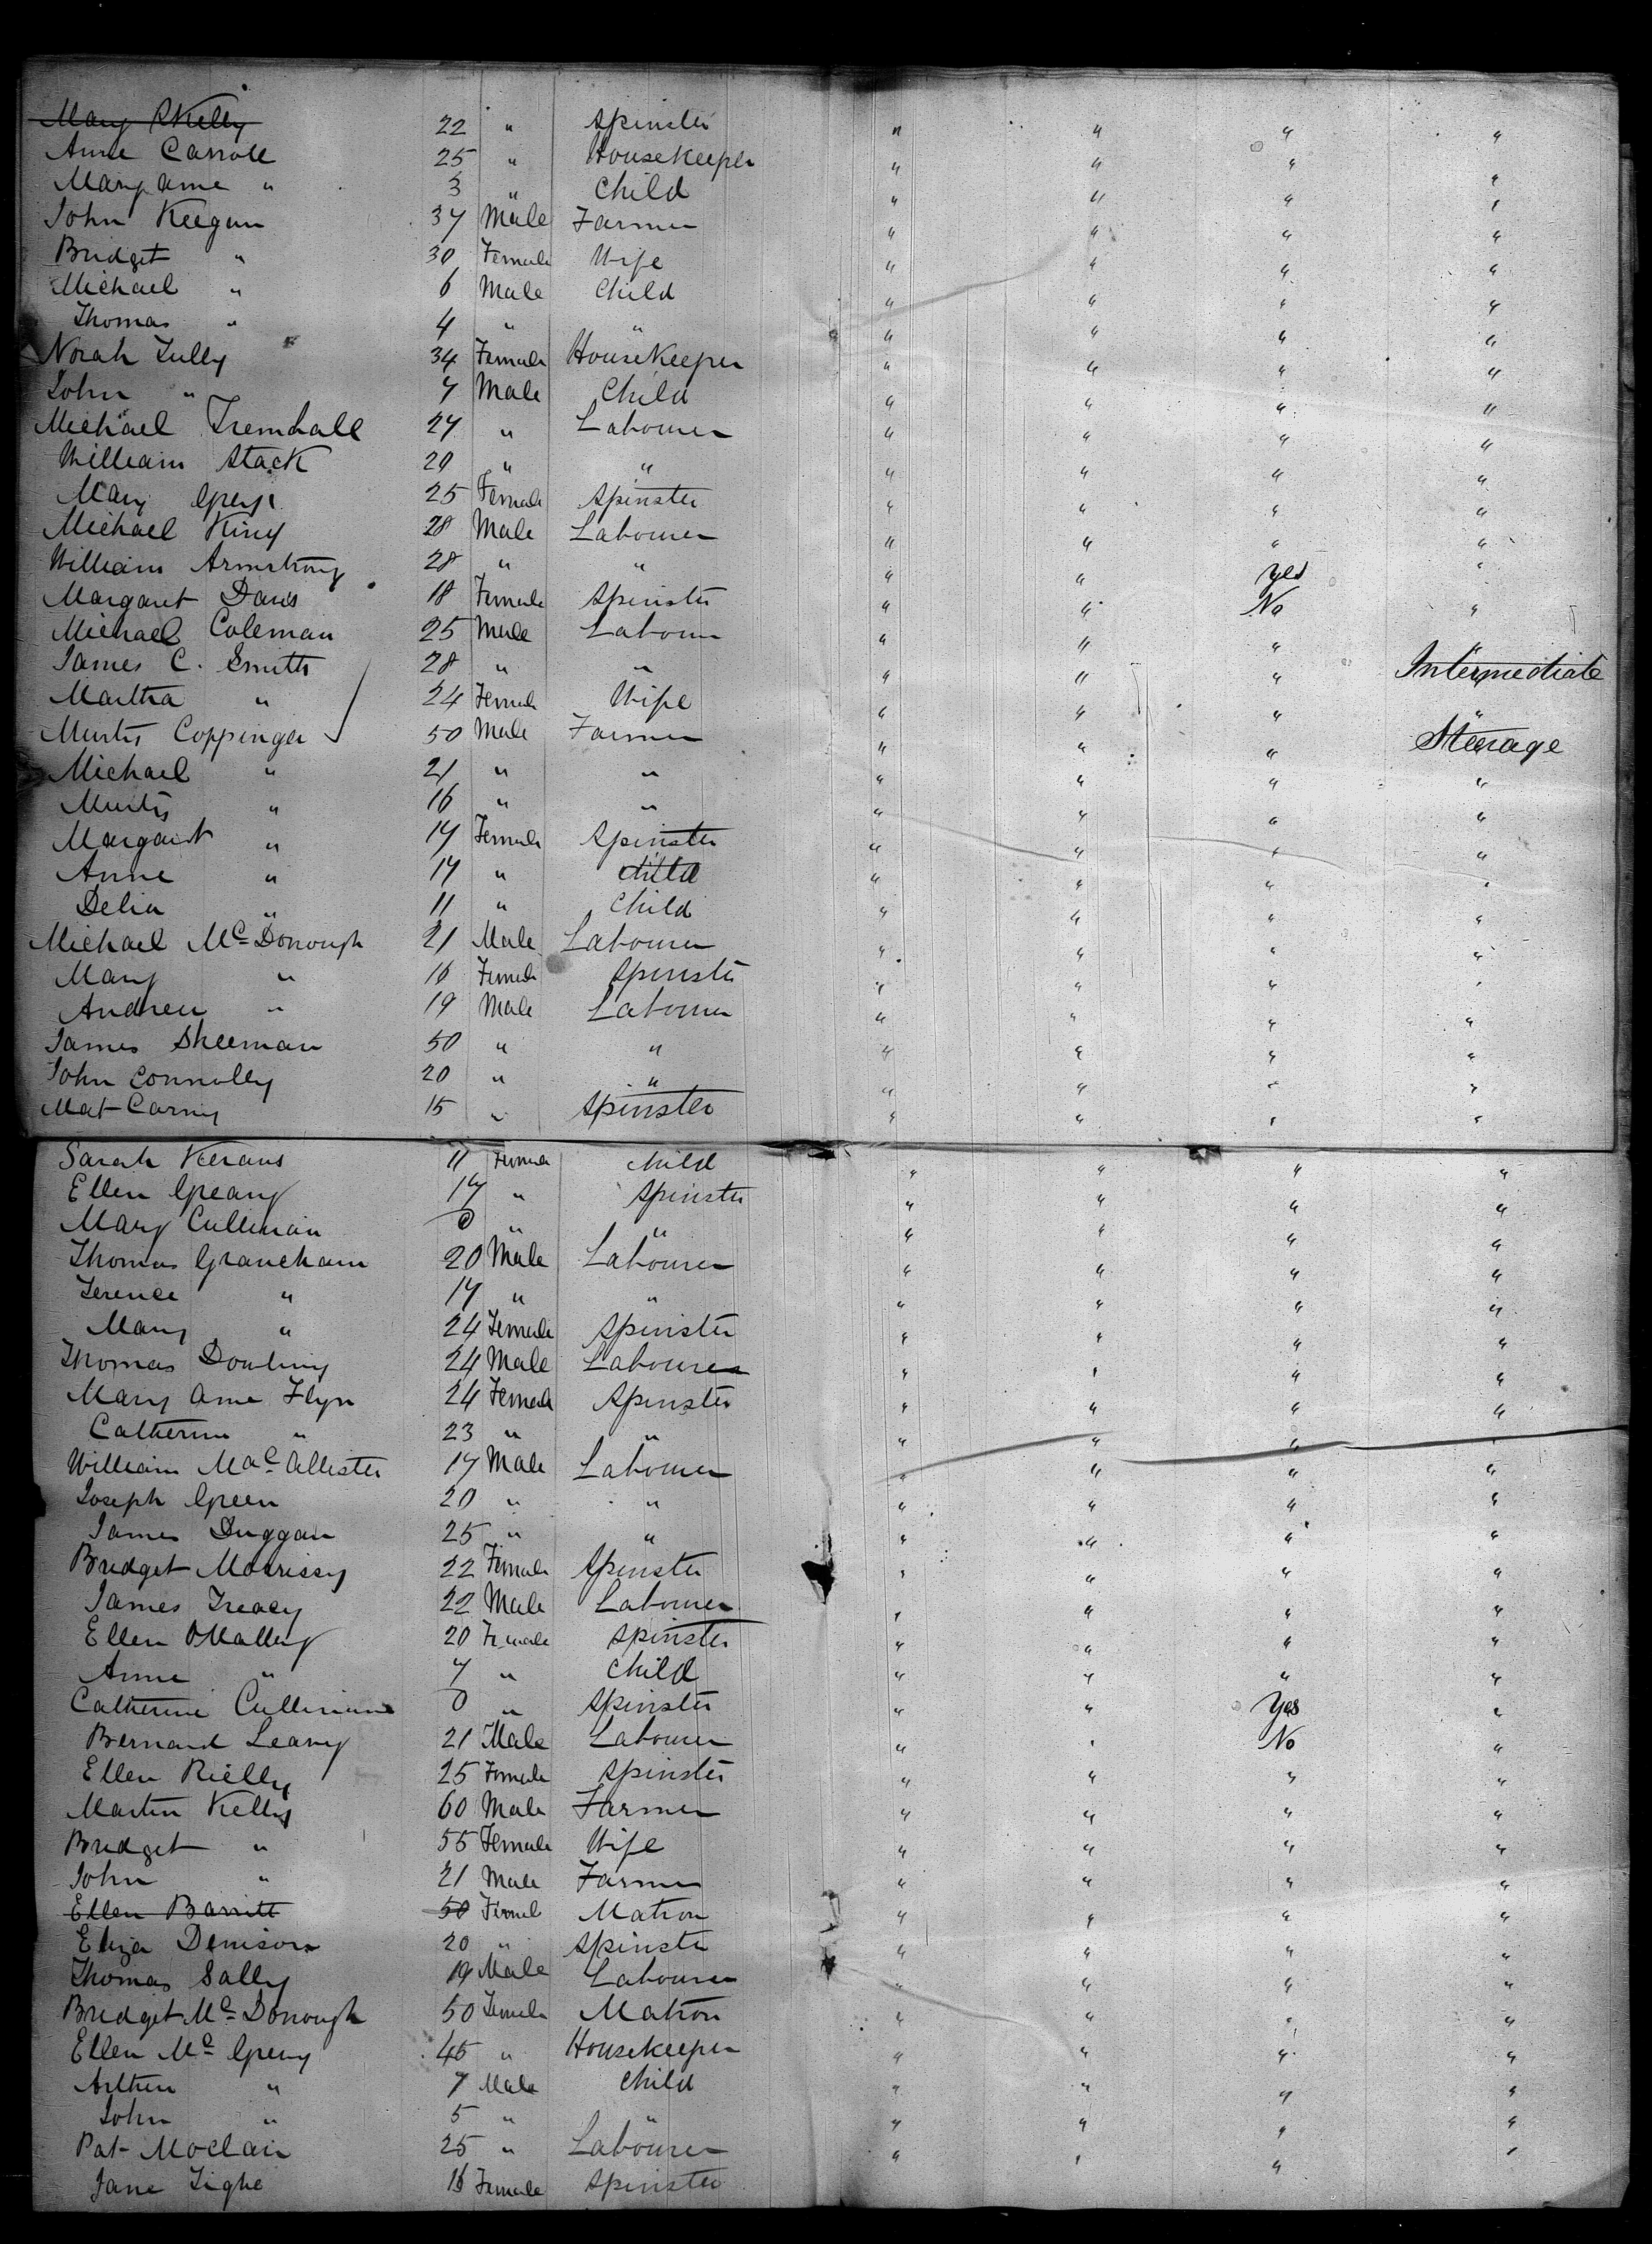 Mary Skelly 22 " Spinster " " " "
Anne Carroll 25 " Housekeeper " " " "
Mary Anne " 3 " Child " " " "
John Keegan 37 Male Farmer " " " "
Bridget " 30 Female Wife " " " "
Michael " 6 Male Child " " " "
Thomas " 4 " " " " " "
Norah Tully 34 Female Housekeeper " " " "
John " 7 Male Child " " " "
Michael 27 " Labourer " " " "
William Stack 20 " " " " " "
Mary 25 Female Spinster " " " "
Michael King 28 Male Labourer " " " "
William Armstrong 28 " " " " Yes "
Margaret Davis 18 Female Spinster " " No "
Michael Coleman 25 Male Labour " " " "
James C. Smith 28 " " " " " Intermediate
Martha " 24 Female Wife " " " "
Murty Coppinger 50 Male Farmer " " " Steerage
Michael " 21 " " " " " "
Murty " 16 " " " " " "
Margaret " 17 Female Spinster " " " "
Anne " 14 " Child " " " "
Delia " 11 " Child " " " "
Michael McDonough 21 Male Labourer " " " "
Mary " 16 Female Spinster " " " "
Andrew " 19 Male Labourer " " " "
James Sheeman 50 " " " " " "
John Connolly 20 " " " " " "
Mat Carny 15 " Spinster " " " "
Sarah Kerans 11 Female Child " " " "
Ellen Geany 17 " Spinster " " " "
Mary Cullinan " " " " " "
Thomas Graucham 20 Male Labourer " " " "
Terence " 17 " " " " " "
Mary " 24 Female Spinster " " " "
Thomas Dowling 24 Male Labourer " " " "
Mary Anne Flyn 24 Female Spinster " " " "
Catherine " 23 " " " " " "
William MacAllister 17 Male Labourer " " " "
Joseph Green 20 " " " " " "
James Duggan 25 " " " " " "
Bridget Morrissy 22 Female Spinster " " " "
James Treacy 22 Male Labourer " " " "
Ellen OMalley 20 Female Spinster " " " "
Anne " 7 " Child " " " "
Catherine Cullinane 0 " Spinster " " Yes "
Bernard Leavy 21 Male Labourer " " No "
Ellen Rielly 25 Female Spinster " " " "
Martin Kelly 60 Male Farmer " " " "
Bridget " 55 Female Wife " " " "
John " 21 Male Farmer " " " "
Ellen Barrett 50 Femal Matron " " " "
Eliza Denison 20 " Spinster " " " "
Thomas Sally 19 Male Labourer " " " "
Bridget McDonough 50 Female Matron " " " "
Ellen Mc 45 " Housekeeper " " " "
Arthur " 7 Male Child " " " "
John " 5 " " " " " "
Pat Moclair 25 " Labourer " " " "
Jane Tighe 16 Female Spinster